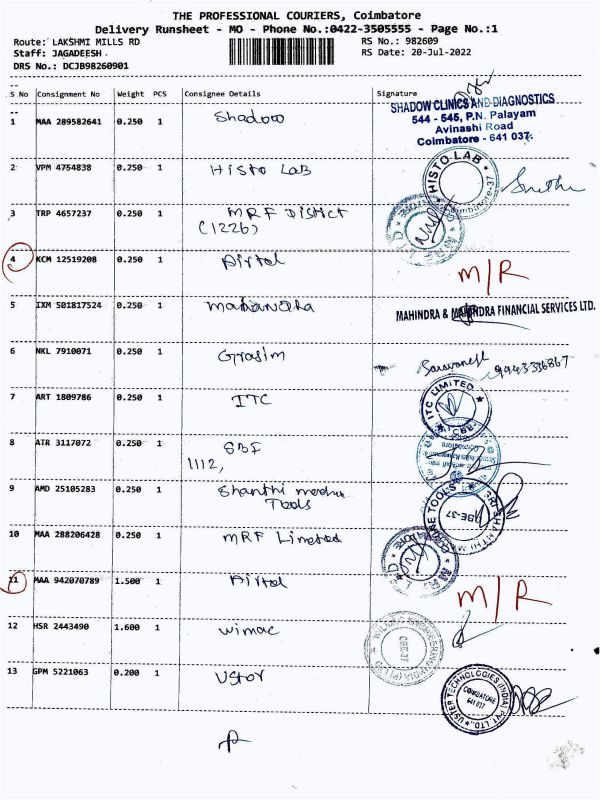 THE PROFESSIONAL COURIERS, Coimbatore
Delivery Runsheet - MO - Phone No.:0422-3505555 - Page No.:1
Route: LAKSHMI MILLS RD RS No.: 982609
Staff: JAGADEESH . RS Date: 20-Jul-2022
DRS No.: DCJB98260901
S No Consignment No Weight PCS Consignee Details Signature
1 MAA 289582641 0.250 1 Shadow
SHADOW CLINICS AND DIAGNOSTICS
544 - 545, P.N. Palayam
Avinashi Road
Coimbatore - 641 037.
2 VPM 4754838 0.250 1 HISTO LAB
HISTO LAB Coimbatore-37
3 TRP 4657237 0.250 1 MRF District
(1226)
4 KCM 12519208 0.250 1 Airtel M/R
5 IXM 501817524 0.250 1 Mahandha
MAHINDRA & MAHINDRA FINANCIAL SERVICES LTD.
6 NKL 7910071 0.250 1 Grasim
9943336867
7 ART 1809786 0.250 1 ITC
ITC LIMITED
8 ATR 3117072 0.250 1 SBF
1112,
9 AMD 25105283 0.250 1 Shanthi
Tools
SRI SHANTHI TOOLS CBE-37
10 MAA 288206428 0.250 1 MRF Limited
11 MAA 942070789 1.500 1 Airtel M/R
12 HSR 2443490 1.600 1 Wimac
CBE-37
13 GPM 5221063 0.200 1 Ustor
USTER TECHNOLOGIES (INDIA) PVT. LTD.,
COIMBATORE
641 037